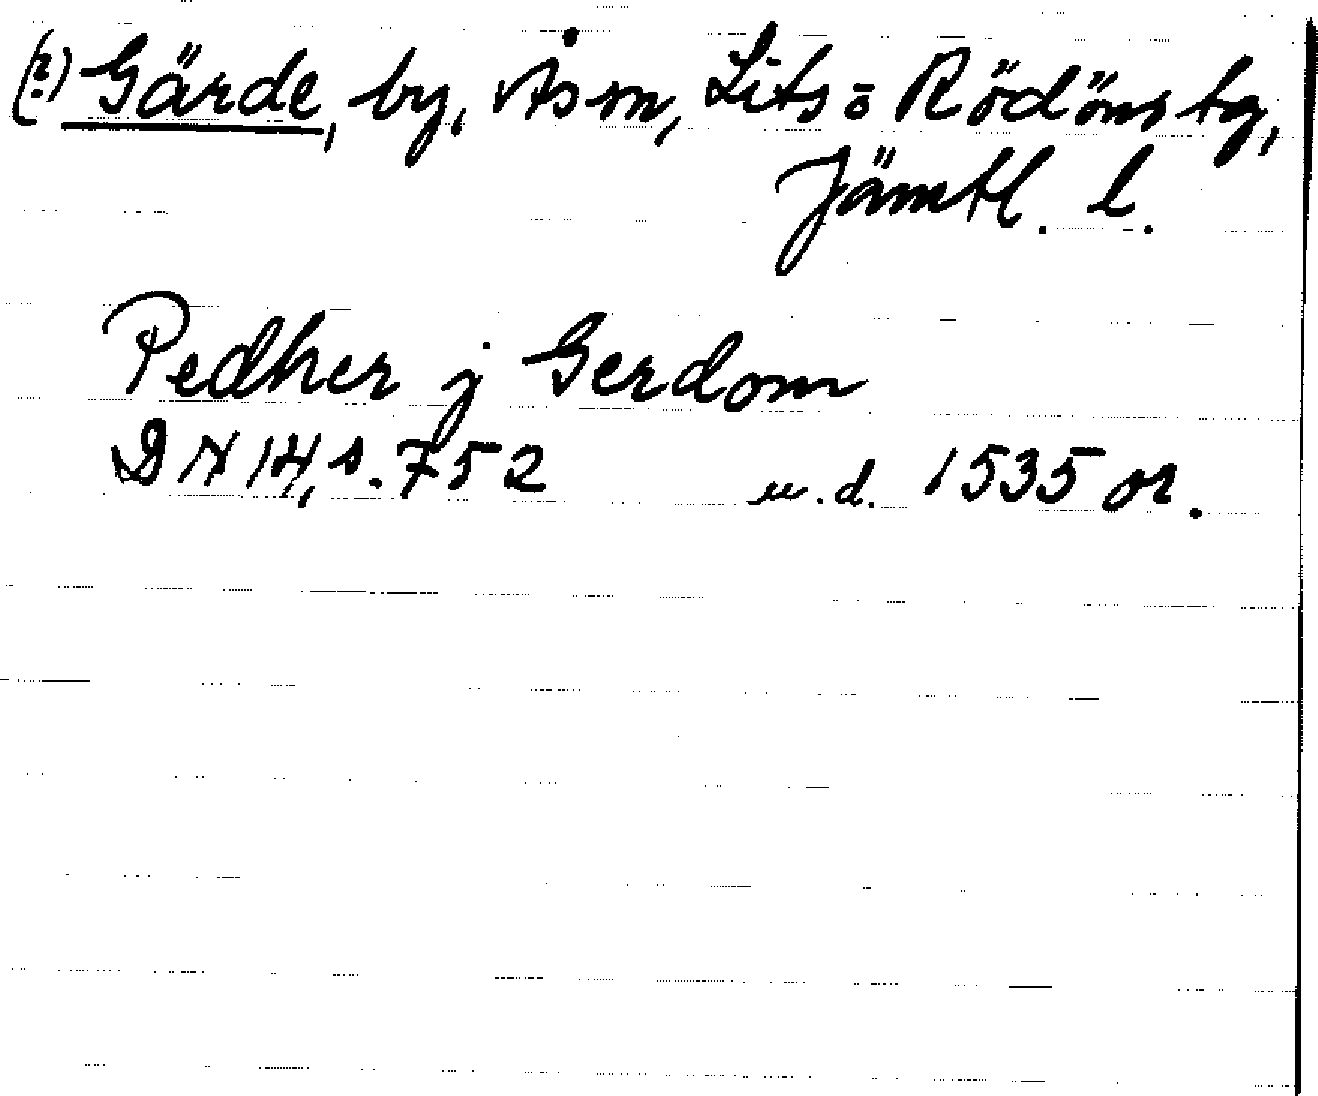 (?) Gärde, by, Ås sn, Lits o Rödöns tg,
Jämtl. l.
Pedher j Gerdom
DN 14, s. 752 u.d. 1535 or.